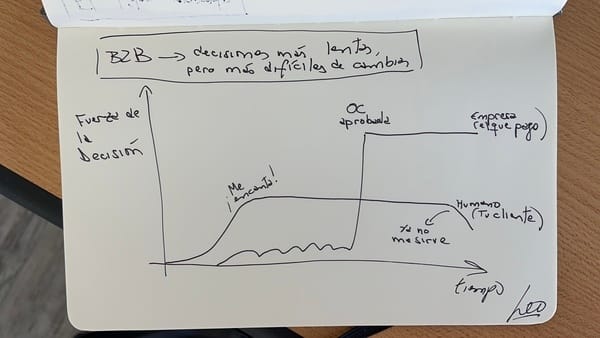 B2B → decisiones más lentas,
pero más difíciles de cambiar
Fuerza de
la
Decisión
¡Me
encanta!
OC
aprobada
Empresa
(el que paga)
Humano
(Tu cliente)
Ya no
me sirve
tiempo
Leo